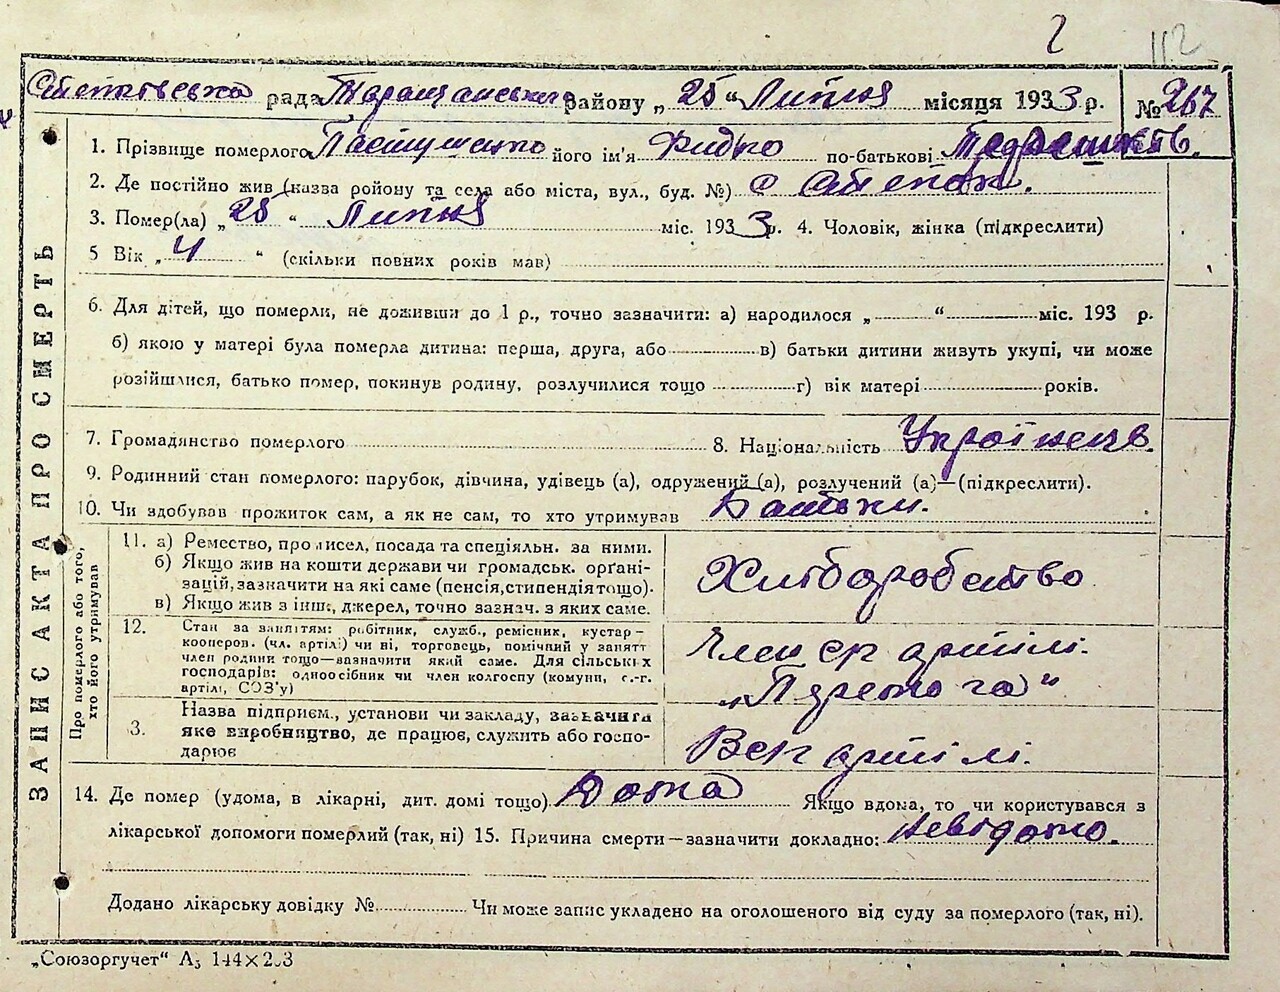 2
112
Степківська рада Таращанського району „ 25 “ Липня місяця 1933 р. № 267
1. Прізвище померлого Пастушенко його ім'я Фидко по-батькові
2. Де постійно жив (назва ройону та села або міста, вул., буд. №) с Степок.
3. Помер(ла) „ 25 “ Липня міс. 1933 р. 4. Чоловік, жінка (підкреслити)
5 Вік „ 4 “ (скільки повних років мав)
6. Для дітей, що померли, не доживши до 1 р., точно зазначити: а) народилося „ “ міс. 193 р.
б) якою у матері була померла дитина: перша, друга, або в) батьки дитини живуть укупі, чи може
розійшлися, батько помер, покинув родину, розлучилися тощо г) вік матері років.
7. Громадянство померлого 8. Національність Українець.
9. Родинний стан померлого: парубок, дівчина, удівець (а), одружений (а), розлучений (а)—(підкреслити).
10. Чи здобував прожиток сам, а як не сам, то хто утримував Батьки.
ЗАПИС АКТА ПРО СМЕРТЬ
Про померлого або того, хто його утримував
11. а) Ремество, промисел, посада та спеціяльн. за ними.
б) Якщо жив на кошти держави чи громадськ. орґані-
зацій, зазначити на які саме (пенсія, стипендія тощо).
в) Якщо жив з інш, джерел, точно зазнач. з яких саме.
Хліборобство
12. Стан за заняттям: робітник, служб., ремісник, кустар—
кооперов. (чл. артілі) чи ні, торговець, помічний у занятт
член родини тощо—зазначити який саме. Для сільськ х
господарів: одноосібник чи член колгоспу (комуни, с.-г.
артілі, СОЗ'у)
Член ск артілі.
„Перемога“
3. Назва підприєм., установи чи закладу, зазначити
яке виробництво, де працює, служить або госпо-
дарює
В ск артілі.
14. Де помер (удома, в лікарні, дит. домі тощо) Дома Якщо вдома, то чи користувався з
лікарської допомоги померлий (так, ні) 15. Причина смерти—зазначити докладно: невідомо.
Додано лікарську довідку № Чи може запис укладено на оголошеного від суду за померлого (так, ні).
„Союзоргучет“ А₅ 144×203